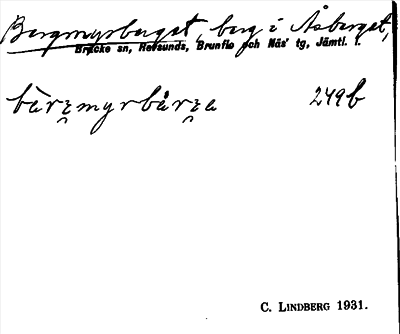 Bergmyrberget, berg i Åsberget,
Bräcke sn, Refsunds, Brunflo och Näs' tg, Jämtl. l.
bàrʒmyrbårʒa 249b
C. LINDBERG 1931.